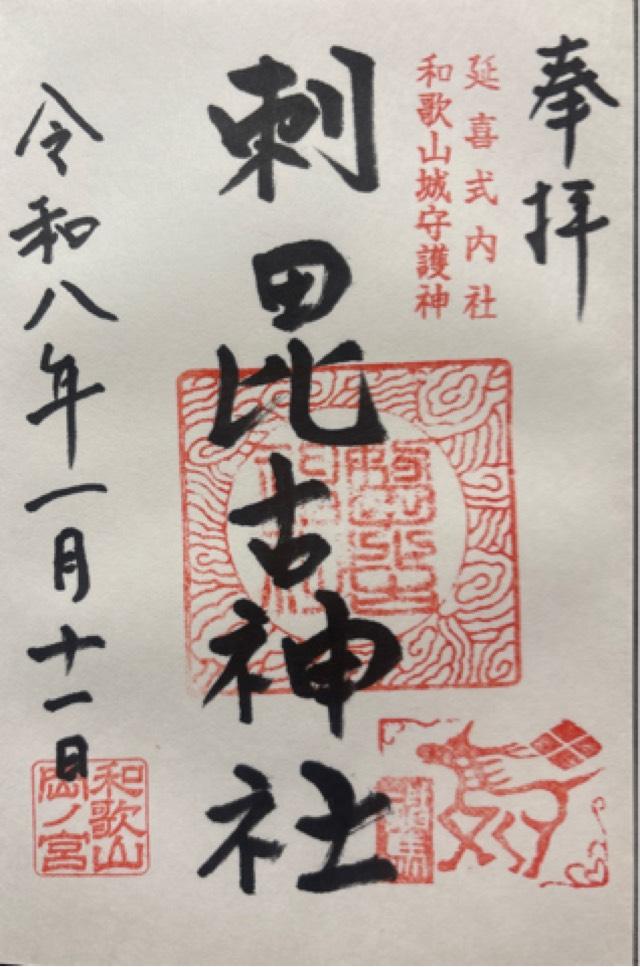 奉拝
延喜式内社
和歌山城守護神
刺田毘古神社
令和八年一月十一日
和歌山
岡ノ宮